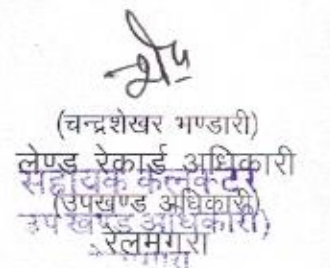 (चन्द्रशेखर भण्डारी)
लेण्ड रेकार्ड अधिकारी
सहायक कलक्टर
(उपखण्ड अधिकारी)
उपखण्ड अधिकारी,
रेलमगरा